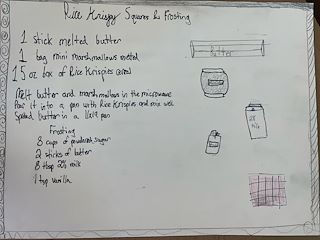 Rice Krispy Squares & Frosting
1 stick melted butter
1 bag mini marshmallows melted
15 oz box of Rice Krispies
Melt butter and marshmallows in the microwave
Pour it into a pan with Rice Krispies and mix well
Spread butter in a pan
Frosting
8 cups of powdered sugar
2 sticks of butter
8 tbsp 2% milk
1 tsp vanilla
Butter
2%
Milk